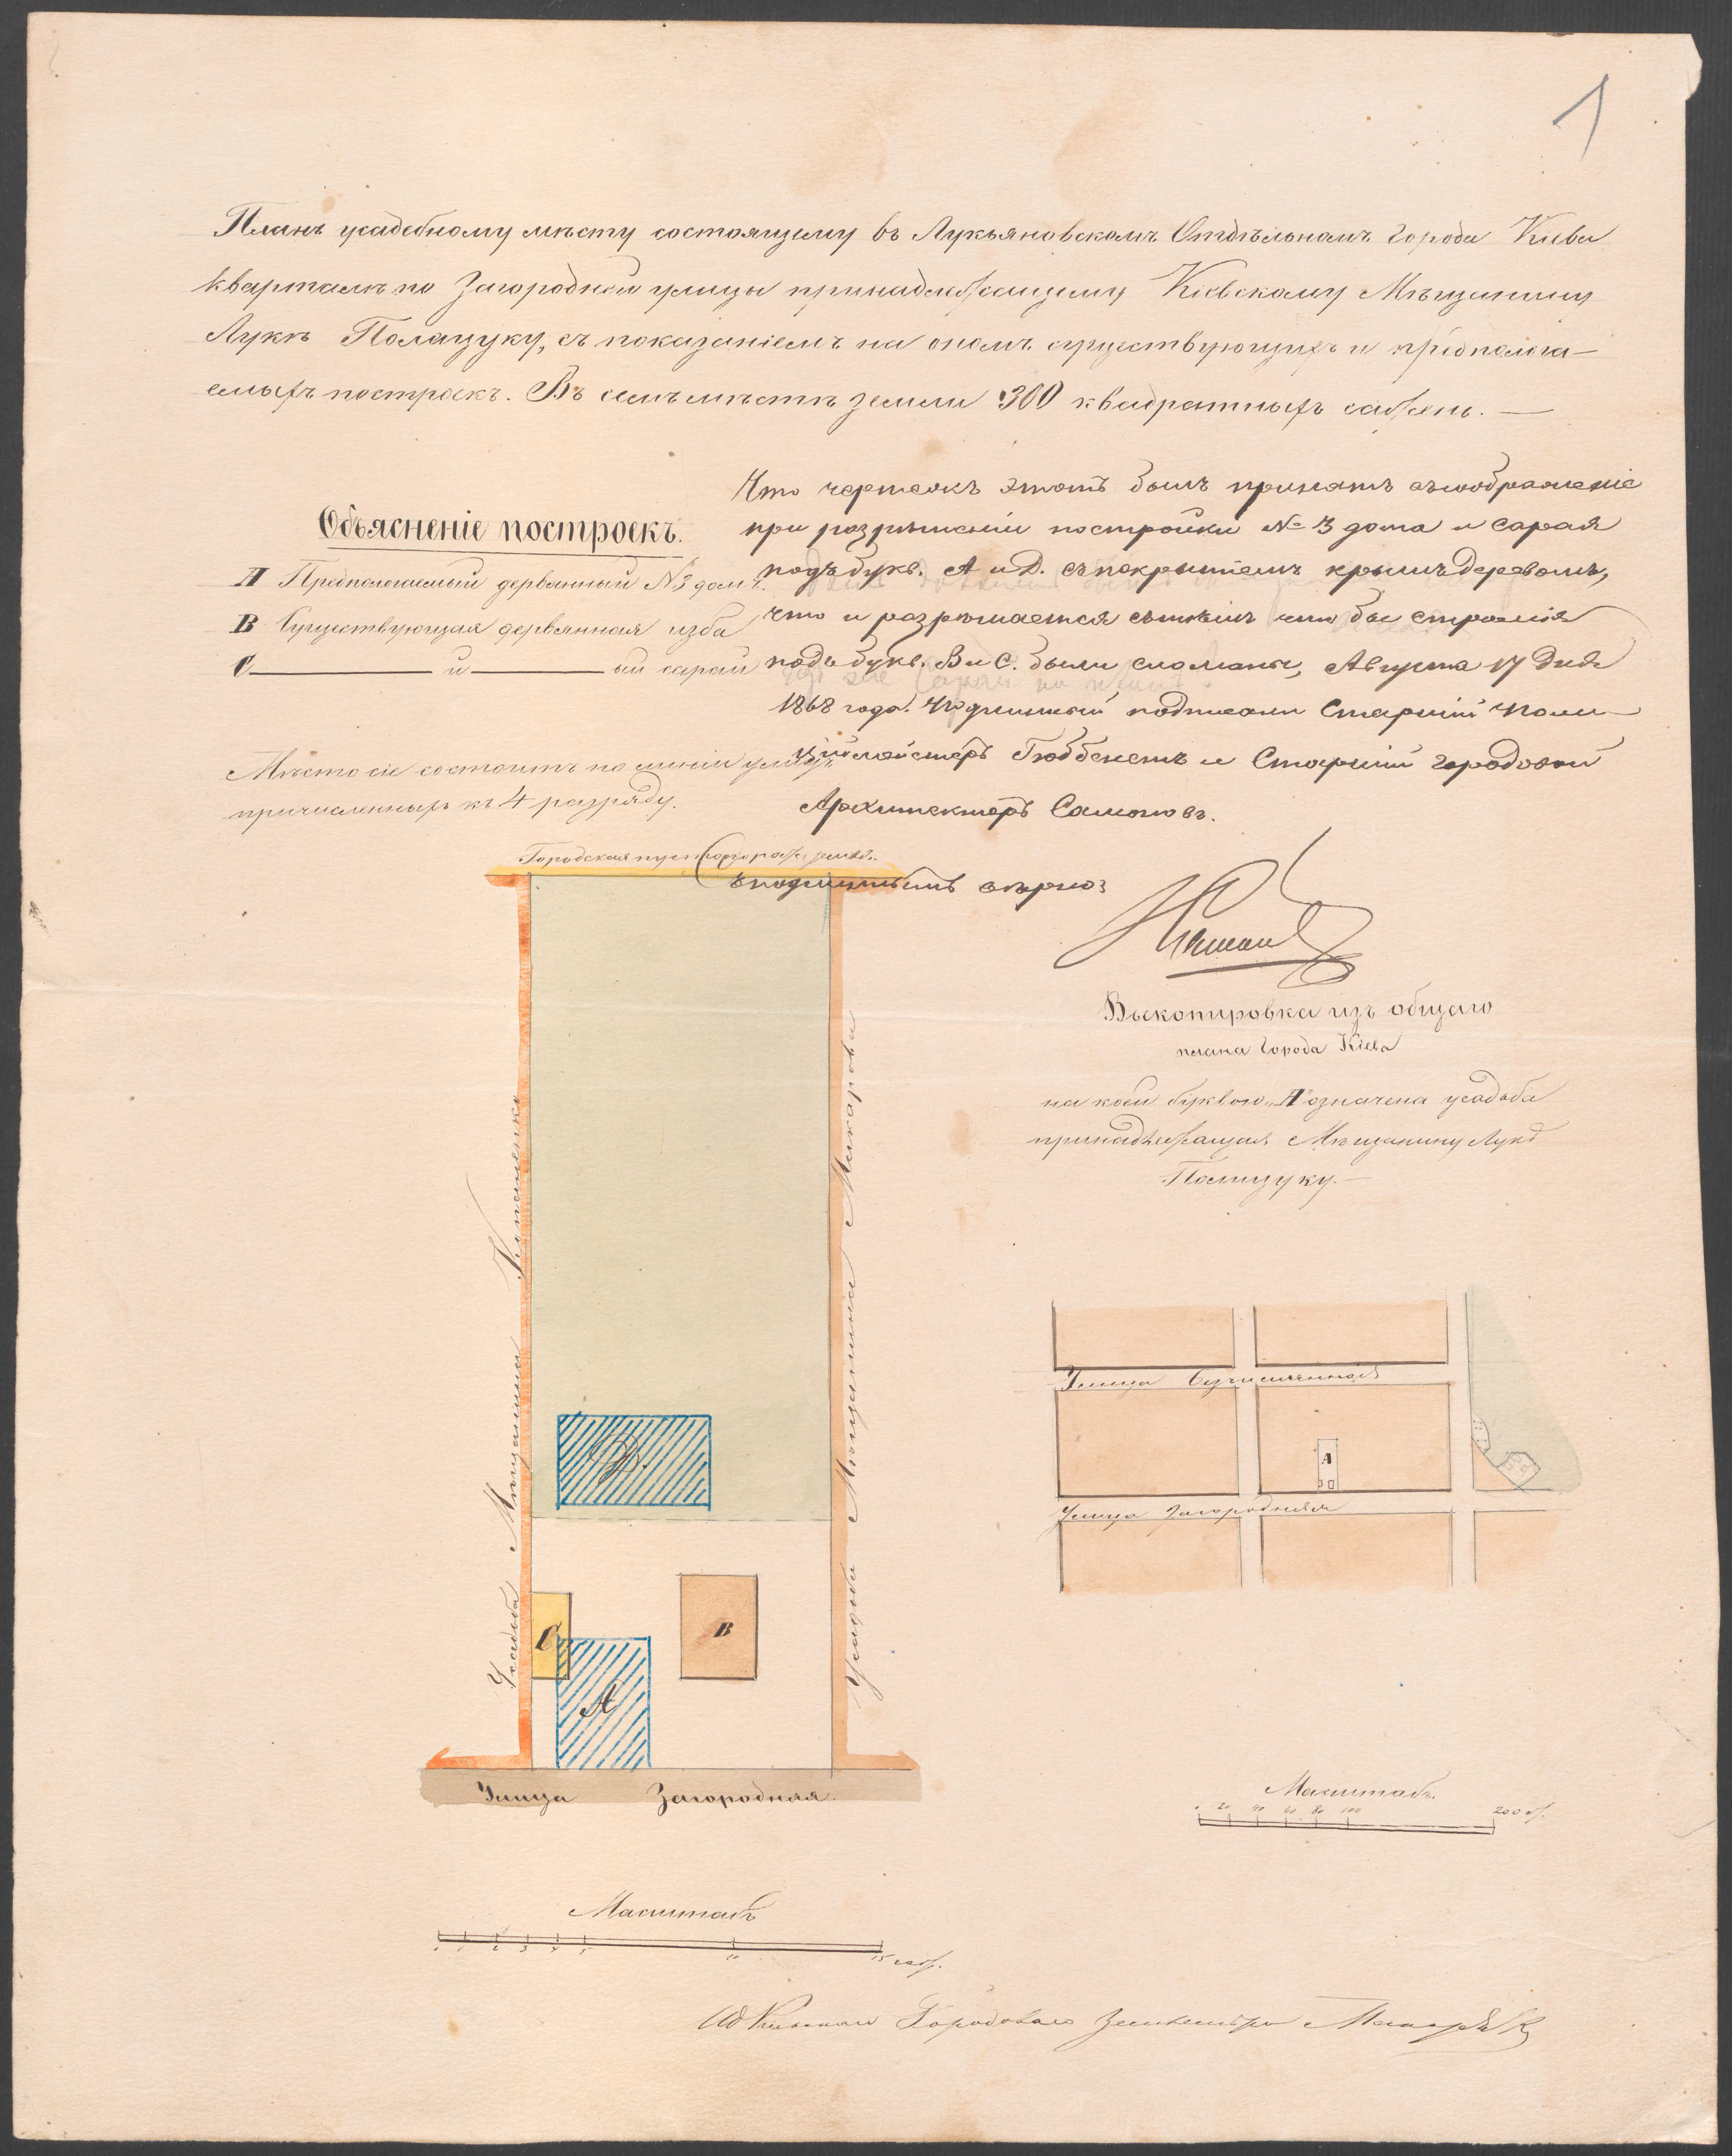 1
Планъ усадебному мѣсту состоящему въ Лукьяновскомъ Отдѣльномъ города Кіева
кварталѣ по Загородней улицы принадлежащему Кіевскому Мѣщанину
Лукѣ Полащуку, съ показаніемъ на ономъ существующихъ и предпола-
емыхъ построекъ. Въ семъ мѣстѣ земли 300 квадратныхъ сажень. —
Объясненіе построекъ.
А Предполагаемый дервянный №3 домъ.
В Существующая дервянная изба
С — й — ый сарай
Мѣсто сіе состоитъ по линіи улицъ
причисленныхъ къ 4 разряду.
Что чертежъ этотъ былъ принятъ въ соображеніе
при разрѣшеніи постройки № 3 дома и сарая
подъ букв. А и Д. съ покрытіемъ крышъ деревомъ,
что и разрѣшается съ тѣмъ что бы строенія
подъ букв. В и С. были сломаны, Августа 17 дня
1868 года. Подлинный подписали Старшій Поли-
ціймейстеръ Гюббенетъ и Старшій городовой
Архитекторъ
съ подлиннымъ вѣрно:
Городская земля.
Выкопировка изъ общаго
плана города Кіева
на коей буквою „А означена усадьба
принадлежащая Мѣщанину Лукѣ
Полищуку. —
Усадьба Мѣщанина
Усадьба Мѣщанина Макарова
Д.
С
В
А
Улица Загородная.
Улица
А
Улица Загородняя
Масштабъ.
0 20 40 60 80 100 200 с.
Масштабъ
0 1 2 3 4 5 10 15 саж.
Городоваго Землемѣра